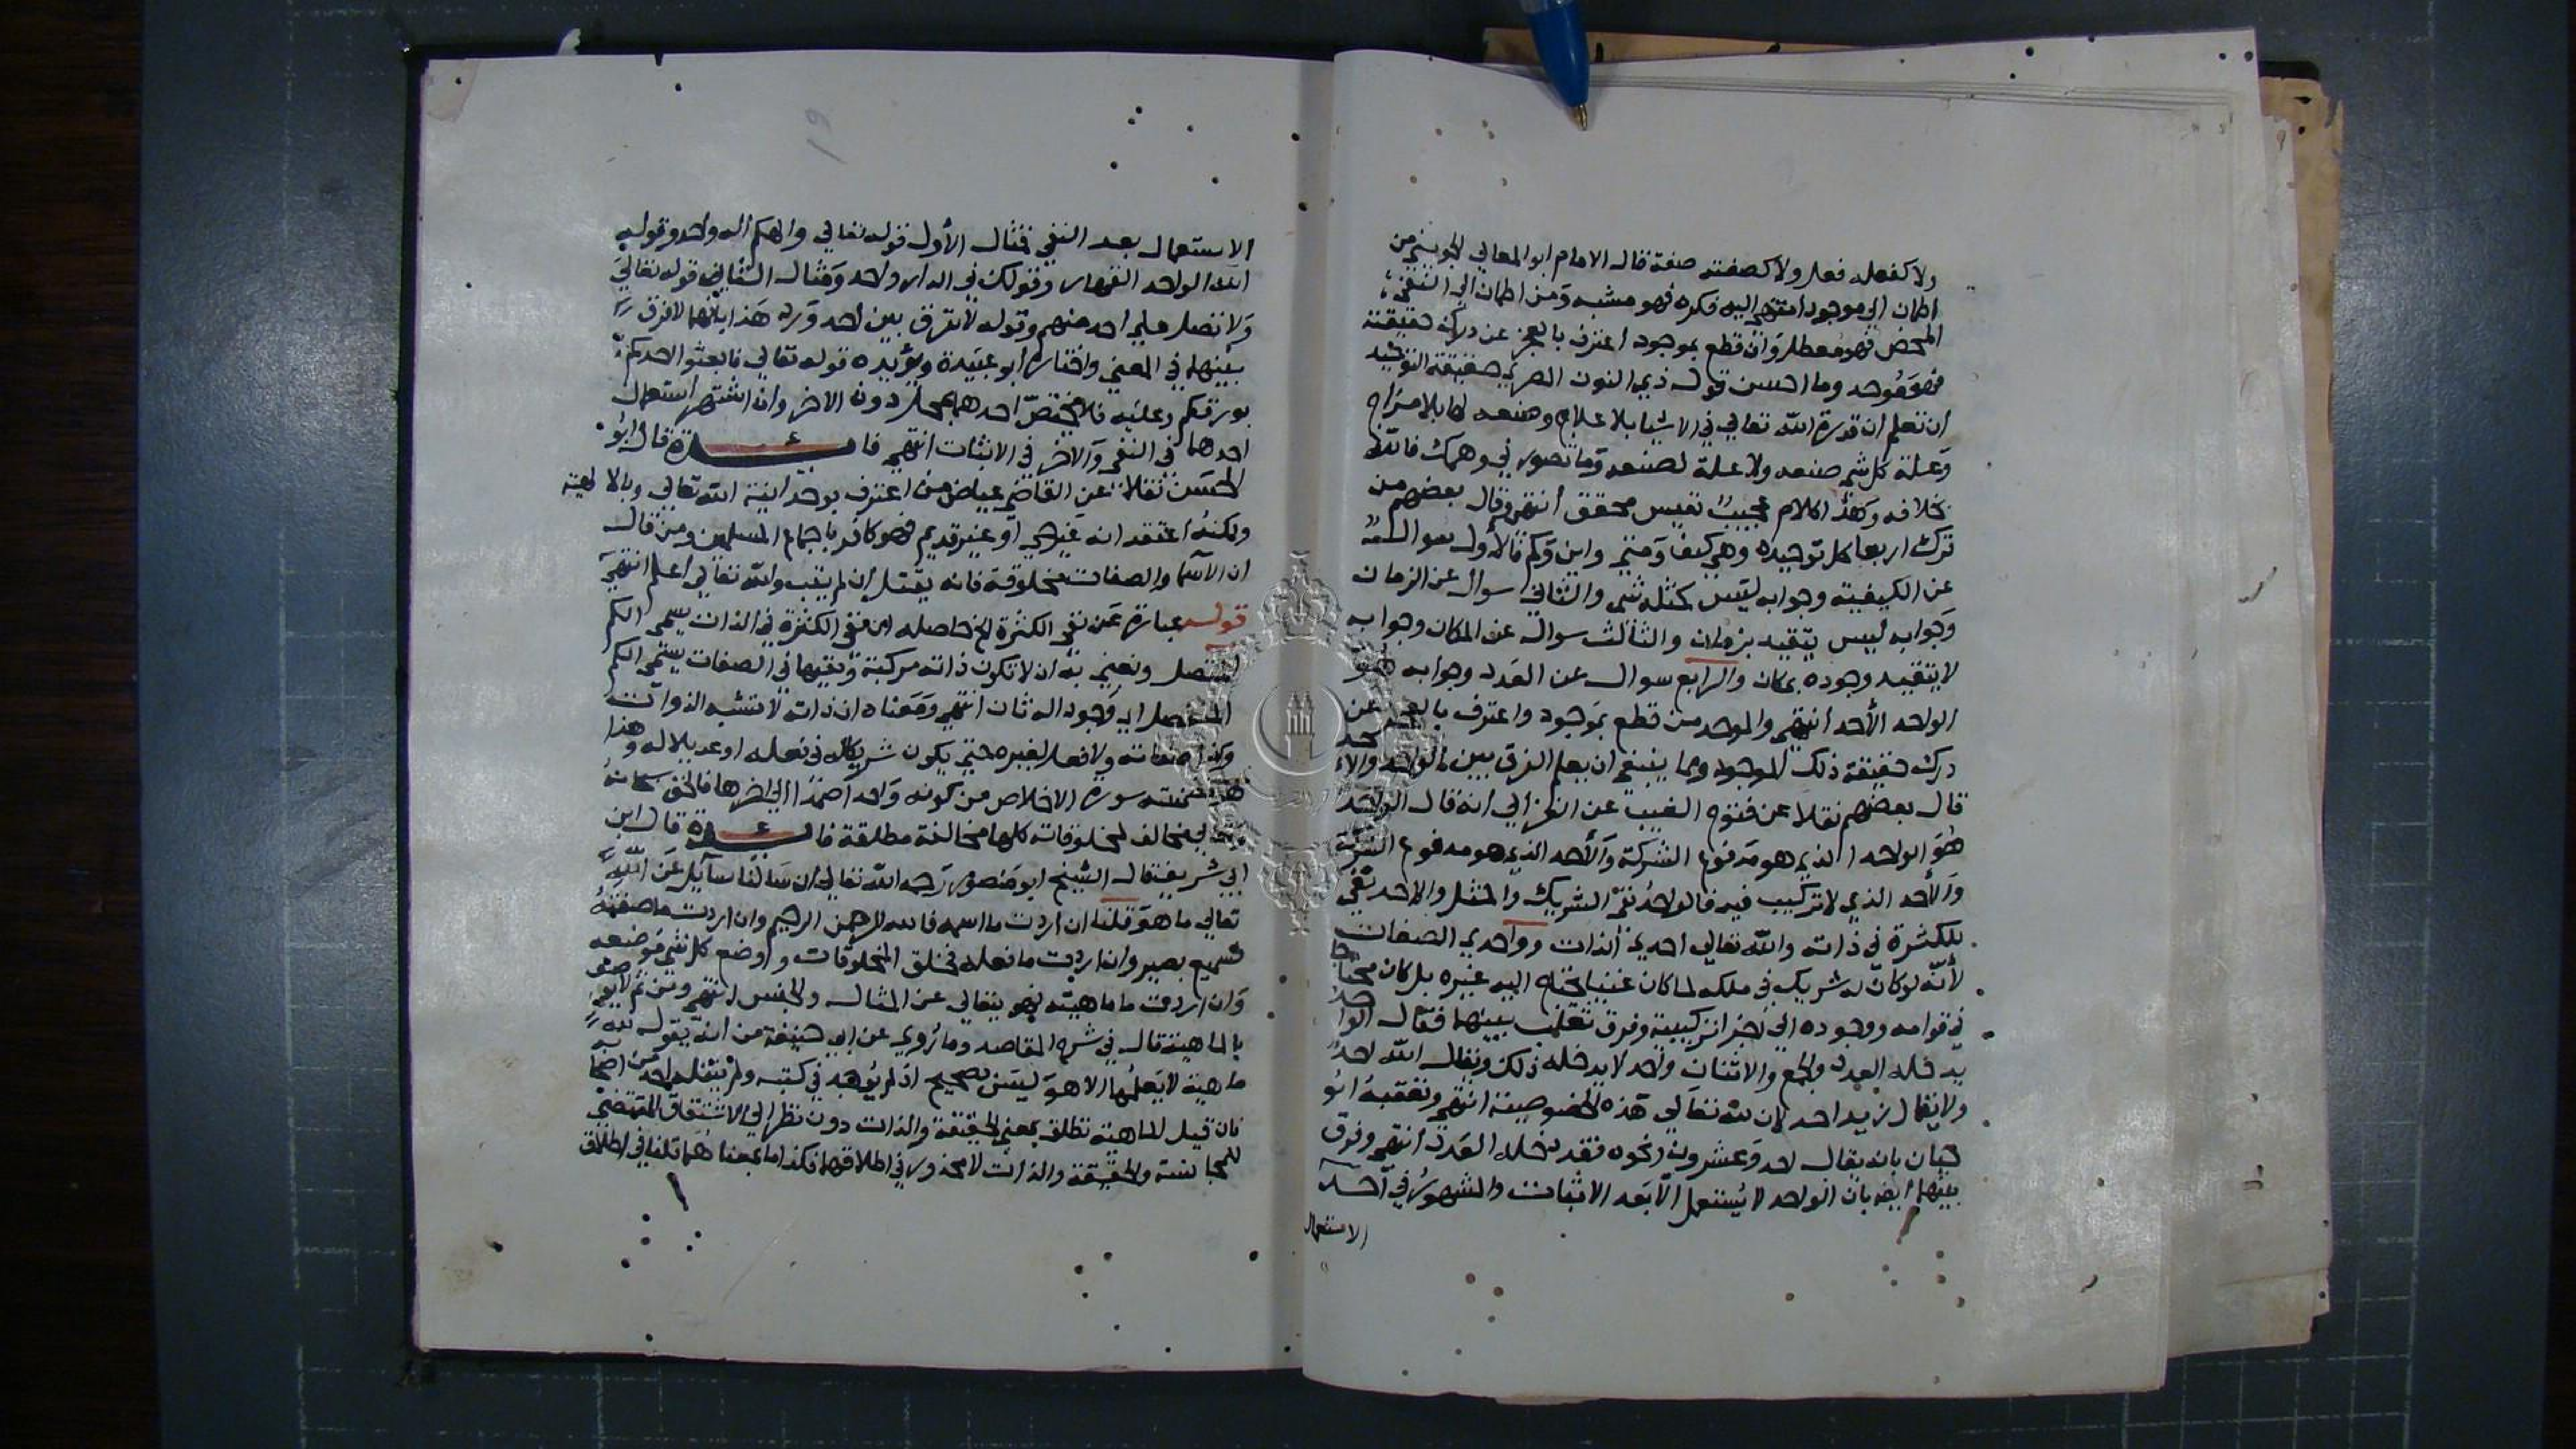 ولا كفعله فعل ولا كصفته صفة قال الامام ابو المعالي الجويني من
اطمان الي موجود انتهي اليه فكره فهو مشبه ومن اطمان الي النفي
المحض فهو معطل وان قطع بموجود اعترف بالعجز عن درك حقيقته
فهو موحد وما احسن قول ذي النون المصري حقيقة التوحيد
ان تعلم ان قدرة الله تعالي في الاشيا بلا علاج وصنعه لها بلا مزاج
وعلة كل شي صنعه ولا علة لصنعه وما تصور في وهمك فالله
بخلافه وهذا كلام عجيب نفيس محقق انتهي وقال بعضهم من
ترك اربعا كمل توحيده وهي كيف ومتي واين وكم فالاول سوال
عن الكيفية وجوابه ليس كمثله شي والثاني سوال عن الزمان
وجوابه ليس يتقيد بزمان والثالث سوال عن المكان وجوابه
لا يتقيد وجوده بمكان والرابع سوال عن العدد وجوابه هو
الواحد الأحد انتهي والموحد من قطع بموجود واعترف بالعجز عن
درك حقيقة ذلك الموجود ومما ينبغي ان يعلم الفرق بين الواحد والاحد
قال بعضهم نقلا عن فتوح الغيب عن الغزالي انه قال الواحد
هو الواحد الذي هو مدفوع الشركة والأحد الذي هو مدفوع الشركة
والأحد الذي لا تركيب فيه فالواحد نفي الشريك والمثل والاحد نفي
للكثرة في ذاته والله تعالي احدي الذات وواحدي الصفات
لأنه لو كان له شريك في ملكه لما كان غنيا يحتاج اليه غيره بل كان محتاجا
في قوامه ووجوده الي اجزا تركيبية وفرق ثعلب بينهما فقال الواحد
يدخله العدد والجمع والاثنان واحد لا يدخله ذلك ويقال الله احد
ولا يقال زيد احد لان لله تعالي هذه الخصوصية انتهي وتعقبه ابو
حيان بانه يقال احد وعشرون ونحوه فقد دخله العدد انتهي وفرق
بينهما ايضا بان الواحد لا يستعمل الا بعد الاثبات والمشهور في احد
الاستعمال
الاستعمال بعد النفي فمثال الأول قوله تعالي والهكم اله واحد وقوله
الله الواحد القهار وقولك في الدار واحد ومثال الثاني قوله تعالي
ولا تصل علي احد منهم وقوله لا نفرق بين احد ورد هذا بأنهما لا فرق
بينهما في المعني واختاره أبو عبيدة ويؤيده قوله تعالي فابعثوا احدكم
بورقكم وعليه فلا يختص احدهما بمحل دون الاخر وان اشتهر استعمال
احدهما في النفي والاخر في الاثبات انتهي فائدة قال ابو
الحسن نقلا عن القاضي عياض من اعترف بوحدانية الله تعالي وبالالهية
ولكنه اعتقد انه غير حي او غير قديم فهو كافر باجماع المسلمين ومن قال
ان الاسما والصفات مخلوقة فانه يقتل ان لم يتب والله تعالي اعلم انتهي
قوله عبارة عن نفي الكثرة الخ حاصله ان نفي الكثرة في الذات يسمي الكم
المتصل ونعني به ان لا تكون ذاته مركبة ونفيها في الصفات يسمي الكم
المنفصل اي وجود اله ثان انتهي ومعناه ان ذاته لا تشبه الذوات
وكذا صفاته ولا فعل لغيره حتي يكون شريكا له في فعله او عديلا له وهذا
هو تضمنته سورة الاخلاص من كونه واحدا صمدا الي اخرها فالحق سبحانه
وتعالي مخالف لمخلوقاته كلها مخالفة مطلقة فائدة قال ابن
ابي شريف قال الشيخ ابو منصور رحمه الله تعالي ان سألنا سائل عن الله
تعالي ما هو قلنا ان اردت ما اسمه فالله الرحمن الرحيم وان اردت ما صفته
فسميع بصير وان اردت ما فعله فخلق المخلوقات ووضع كل شي موضعه
وان اردت ما ماهيته فهو يتعالي عن المثال والجنس انتهي ومن ثم لا يوصف
بالماهية قال في شرح المقاصد وما روي عن ابي حنيفة من انه يقول لله
ماهية لا يعلمها الا هو ليس بصحيح اذ لم يوجد في كتبه ولم ينقله احد من اصحابه
فان قيل الماهية تطلق بمعني الحقيقة والذات دون نظر الي الاشتقاق المقتضي
للمجانسة والحقيقة والذات لا محذور في اطلاقهما فكذا ما بمعناهما قلنا في اطلاق